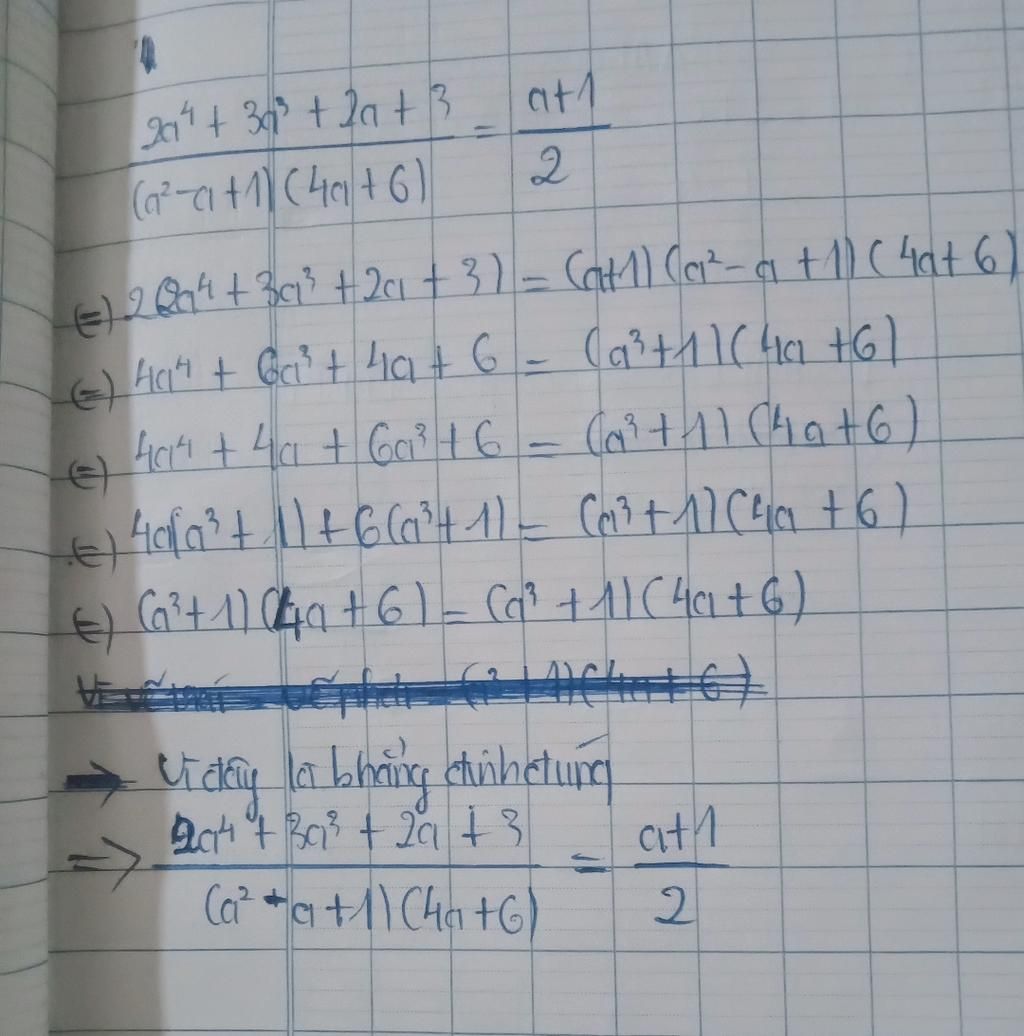 2a⁴ + 3a³ + 2a + 3 / (a² - a + 1)(4a + 6) = a+1 / 2
(=) 2(2a⁴ + 3a³ + 2a + 3) = (a+1)(a² - a + 1)(4a + 6)
(=) 4a⁴ + 6a³ + 4a + 6 = (a³ + 1)(4a + 6)
(=) 4a⁴ + 4a + 6a³ + 6 = (a³ + 1)(4a + 6)
(=) 4a(a³ + 1) + 6(a³ + 1) = (a³ + 1)(4a + 6)
(=) (a³ + 1)(4a + 6) = (a³ + 1)(4a + 6)
→ Vì đây là khẳng định đúng
=> 2a⁴ + 3a³ + 2a + 3 / (a² - a + 1)(4a + 6) = a+1 / 2